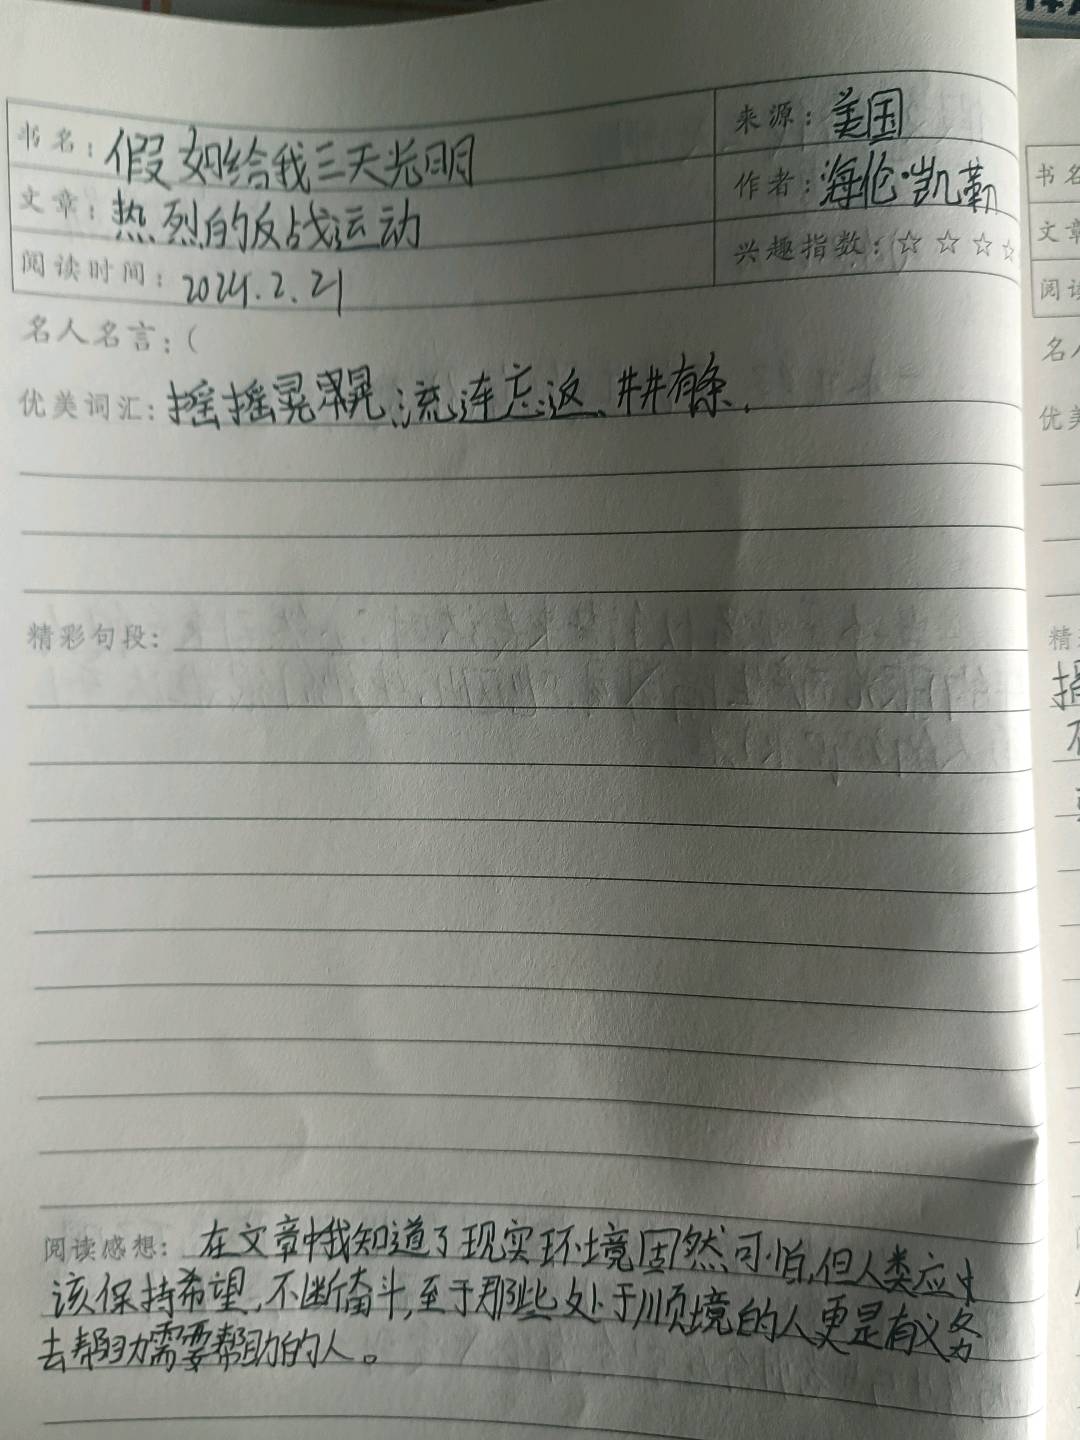 书名：假如给我三天光明
来源：美国
文章：热烈的反战运动
作者：海伦·凯勒
阅读时间：2024.2.21
兴趣指数：☆☆☆☆
名人名言：（
优美词汇：摇摇晃晃、流连忘返、井井有条．
精彩句段：
阅读感想：在文章中我知道了现实环境固然可怕，但人类应
该保持希望，不断奋斗，至于那些处于顺境的人更是有义务
去帮助需要帮助的人。
书名
文章
阅读
名人
优美
精